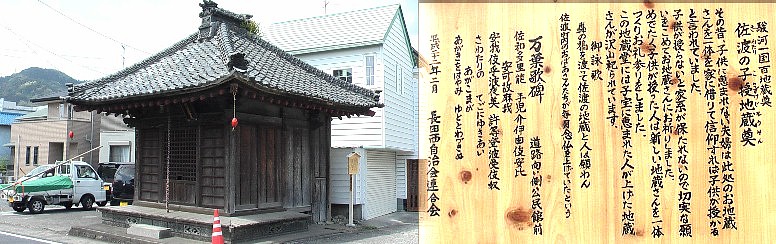 駿河一国百地蔵尊
佐渡の子授地蔵尊
その昔、子供に恵まれない夫婦は此処のお地蔵
さんを一体を家に借りて信仰すれば子供が授かる
と言われていました。
子供が授らないと家系が保たれないので切実な願
いをこめてお地蔵さんにお祈りしました。
めでたく子供が授った人は新しい地蔵さんを一体
つくりお礼参りをしました。
この地蔵堂には子宝に恵まれた人が上げた地蔵
さんが沢山祀られています。
御詠歌
の橋を渡て佐渡の地蔵に人は願わん
万葉歌碑
道路向い側公民館前
佐和多里能 手児尓伊由伎安比
安可故麻我
安我伎乎波夜美 許等登波受伎奴
さわたりの てこにゆきあい
あがこまが
あがきをはやみ こととわずきぬ
平成十二年一月
長田西自治会連合会